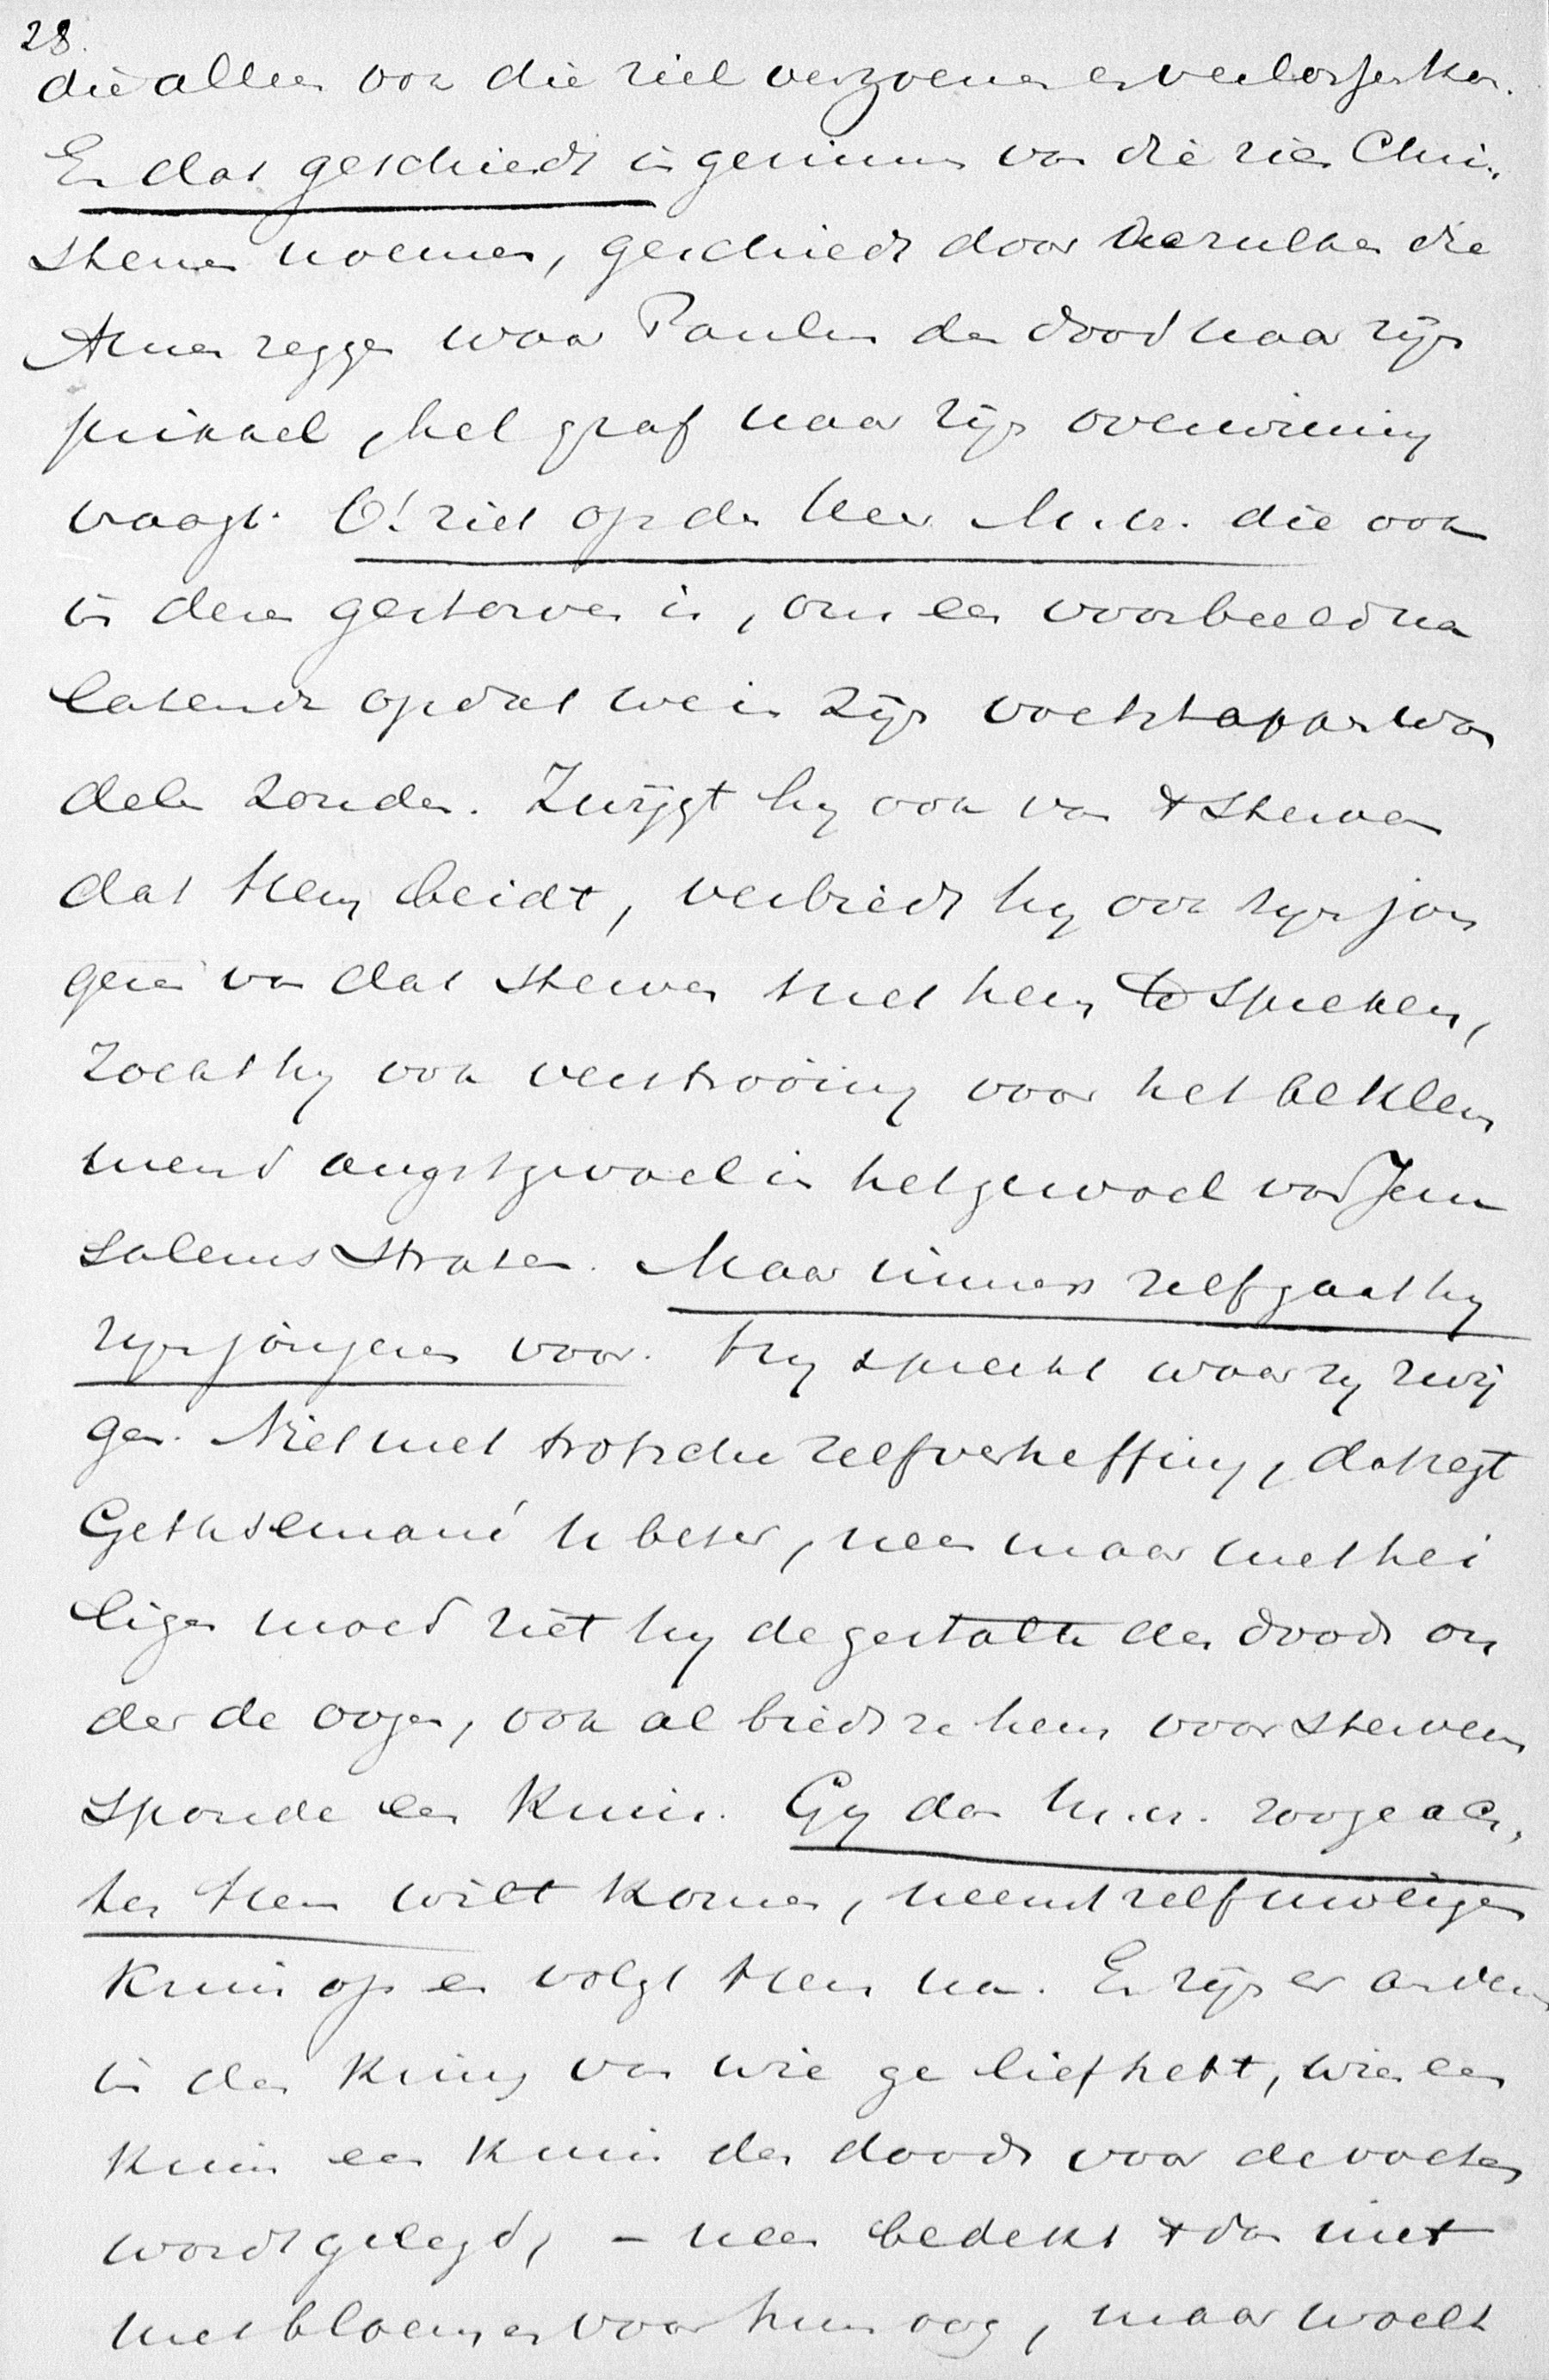 28.
die alleen ook die ziel verzoenen en verlossen kan.
En dat geschiedt in gezinnen van die zich Chri-
stenen noemen, geschiedt door dezulken die
Amen zeggen waar Paulus den dood naar zijn
prikkel, het graf naar zijn overwinning
vraagt. O! ziet op den Heer M. H. die ook
in dezen gestorven is, ons een voorbeeld na
latende opdat we in zijn voetstappen wan
delen zouden. Zwijgt hy ook van 't sterven
dat Hem beidt, verbiedt hy ook zyn jon
geren van dat sterven met hem te spreken,
zoekt hy ook verstrooiing voor het beklem
mend angstgevoel in het gewoel van Jeru
salems straten. Maar immers zelf gaat hy
zyn jongeren voor. Hy spreekt waar zy zwij
gen. Niet met trotsche zelfverheffing, dat zegt
Gethsemané u beter, neen maar met hei
ligen moed ziet hy de gestalte des doods on
der de oogen, ook al biedt ze hem voor stervens
sponde een kruis. Gy dan M. H. zoo ge ach-
ter Hem wilt komen, neemt zelf uw eigen
kruis op en volgt Hem na. En zijn er anderen
in den kring van wie ge liefhebt, wien een
kruis een kruis des doods voor de voeten
wordt gelegd, – neen bedekt 't dan niet
met bloemen voor hun oog, maar